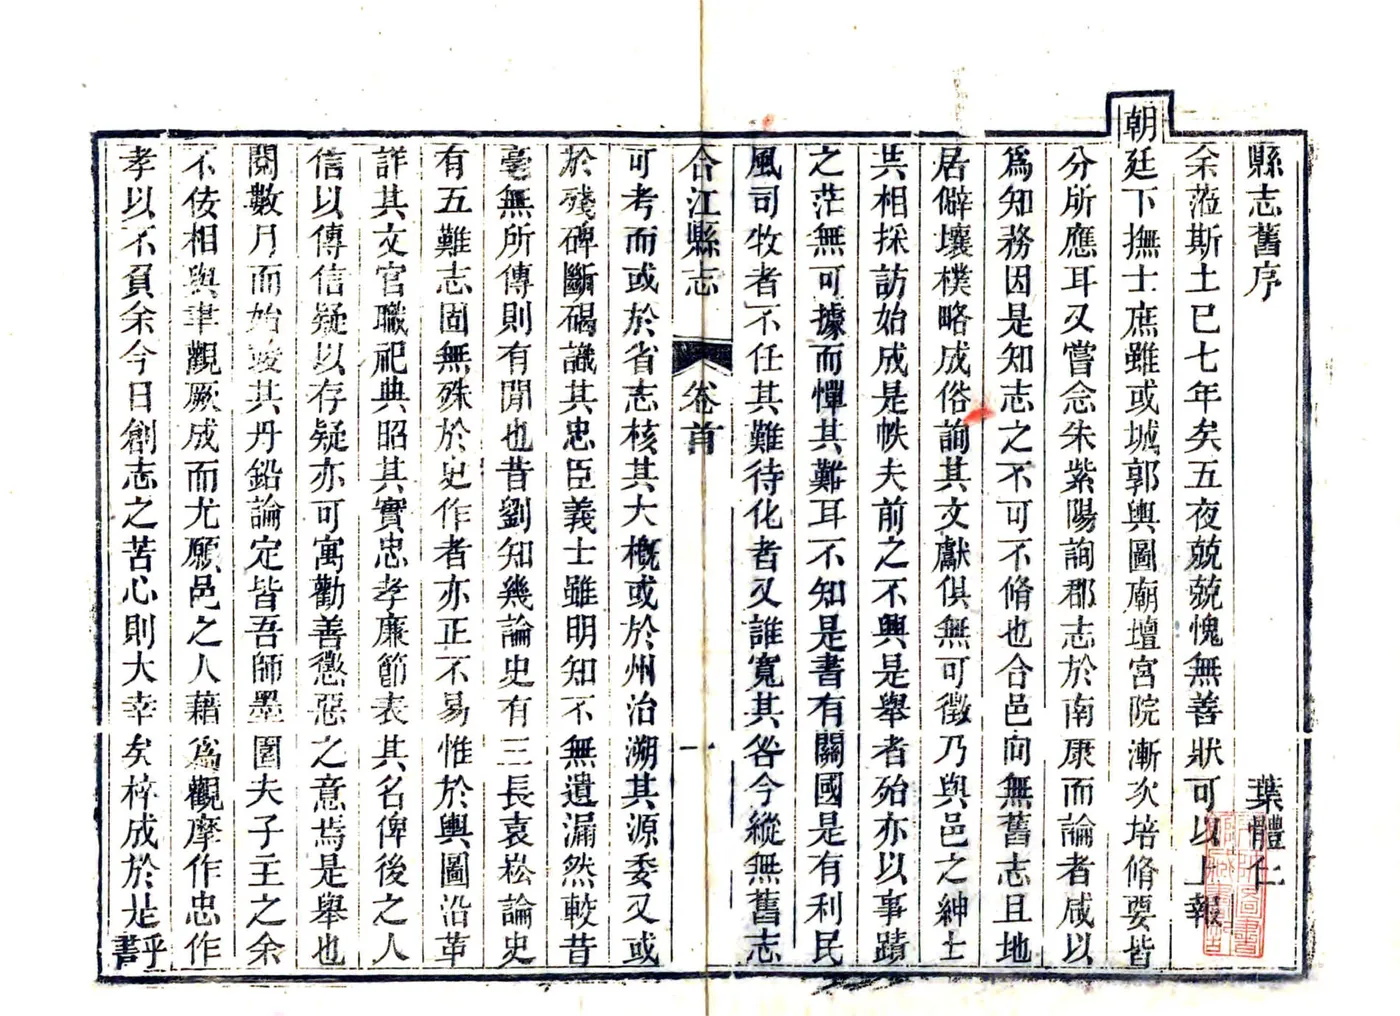 縣志舊序
葉體仁
余蒞斯土已七年矣五夜兢兢愧無善狀可以上報
朝廷下撫士庶雖或城郭輿圖廟壇宮院漸次培脩要皆
分所應耳又嘗念朱紫陽詢郡志於南康而論者咸以
爲知務因是知志之不可不脩也合邑向無舊志且地
居僻壤樸略成俗詢其文獻俱無可徵乃與邑之紳士
共相採訪始成是帙夫前之不興是舉者殆亦以事蹟
之茫無可據而憚其難耳不知是書有關國是有利民
風司牧者不任其難待化者又誰寬其咎今縱無舊志
合江縣志
卷首
一
可考而或於省志核其大槪或於州治溯其源委又或
於殘碑斷碣識其忠臣義士雖明知不無遺漏然較昔
毫無所傳則有間也昔劉知幾論史有三長袁崧論史
有五難志固無殊於史作者亦正不易惟於輿圖沿革
詳其文官職祀典昭其實忠孝廉節表其名俾後之人
信以傳信疑以存疑亦可寓勸善懲惡之意焉是舉也
閱數月而始竣其丹鉛論定皆吾師墨園夫子主之余
不佞相與聿觀厥成而尤願邑之人藉爲觀摩作忠作
孝以不負余今日創志之苦心則大幸矣梓成於是乎書